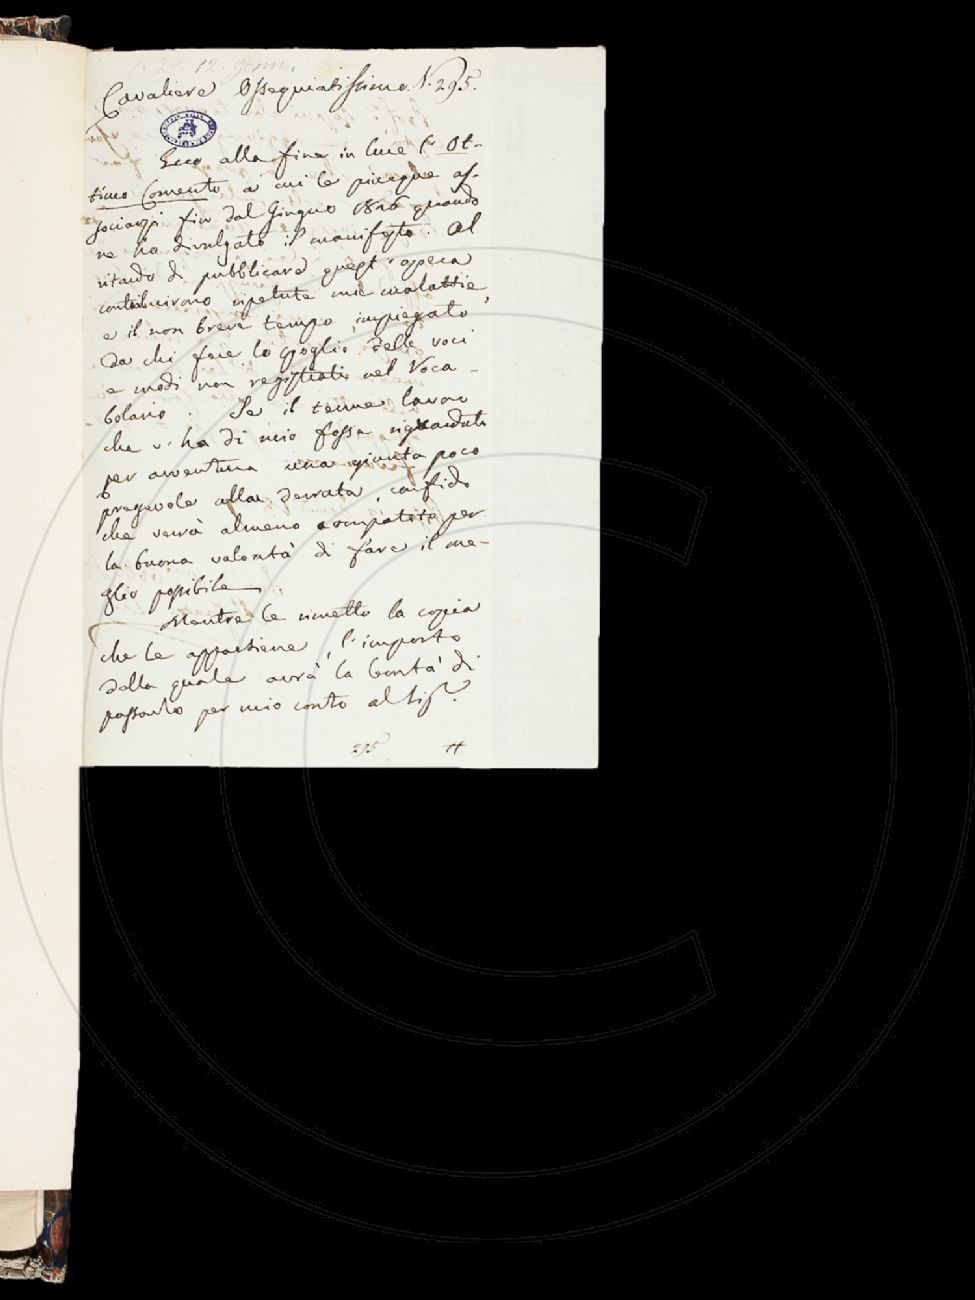 1829. 12. Genn.
Cavaliere Ossequiatissimo N. 295.
Ecco alla fine in luce l' Ot-
timo Comento a cui le piacque as-
sociarsi fin dal Giugno 1826 quando
ne ho divulgato il manifesto. Al
ritardo di pubblicare quest' opera
contribuirono ripetute mie malattie,
e il non breve tempo impiegato
da chi fece lo spoglio delle voci
e modi non registrati nel Voca-
bolario. Se il tenue lavoro
che v' ha di mio fosse riguardato
per avventura una giunta poco
pregevole alla derrata, confido
che verrà almeno compatito per
la buona volontà di fare il me-
glio possibile.
Mentre le rimetto la copia
che le appartiene, l' importo
della quale avrà la bontà di
passarlo per mio conto al Sigr.
295 ++